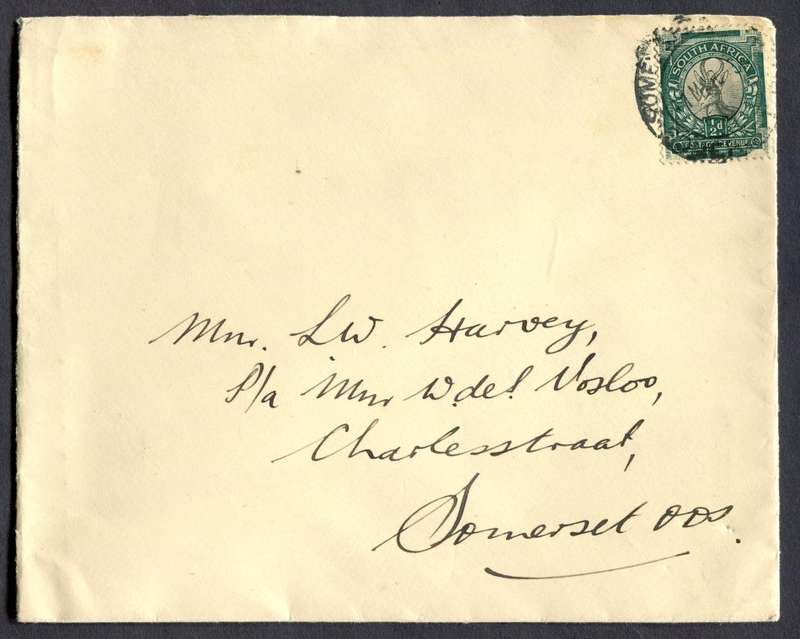 SOME
SOUTH AFRICA
½d
Mnr. L.W. Harvey,
P/a Mnr W.deL. Vosloo,
Charlesstraat,
Somerset Oos.